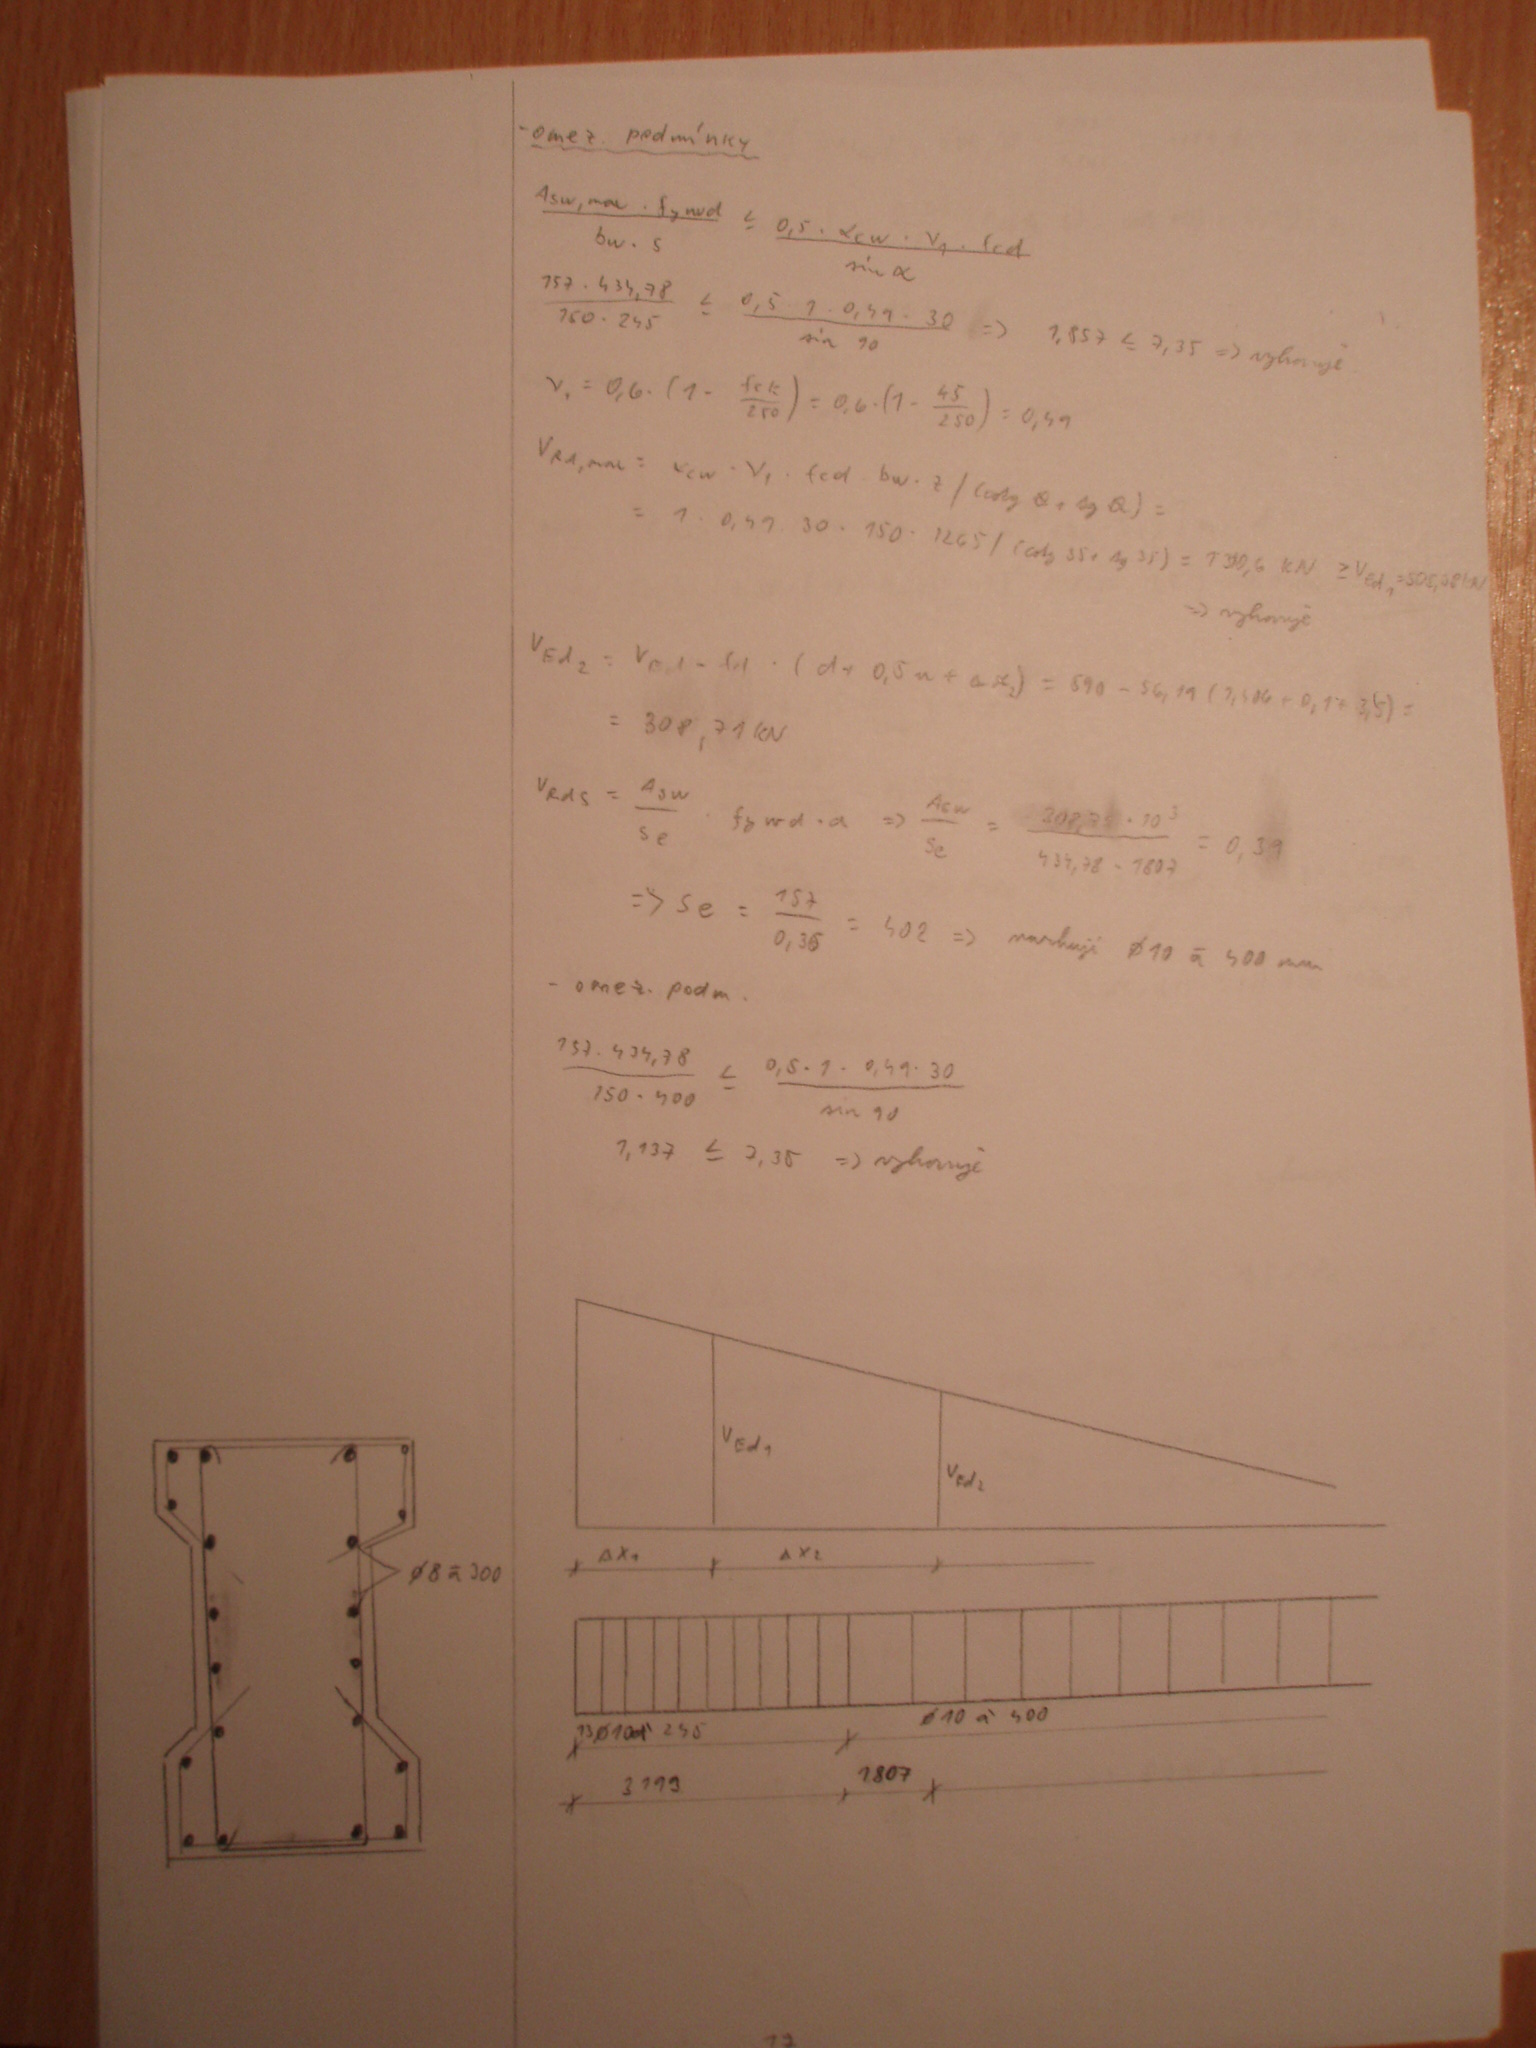 - omez. podmínky
Asw,max · fywd / bw · s ≤ 0,5 · αcw · ν1 · fcd / sin α
157 · 434,78 / 150 · 245 ≤ 0,5 · 1 · 0,49 · 30 / sin 90 => 1,857 ≤ 7,35 => vyhovuje
ν1 = 0,6 · (1 - fck/250) = 0,6 · (1 - 45/250) = 0,49
VRd,max = αcw · ν1 · fcd · bw · z / (cotg θ + tg θ) =
= 1 · 0,49 · 30 · 150 · 1265 / (cotg 35 + tg 35) = kN ≥ VEd1 = 505,58 kN
=> vyhovuje
VEd2 = VEd - fd · (d + 0,5u + Δx2) = 590 - 56,19 ( + 0,1 + 3,5) =
= 308,71 kN
VRds = Asw/se · fywd · a => Asw/se = 308,71 · 10³ / 434,78 · 1807 = 0,39
=> se = 157 / = 402 => navrhuji ø10 ā 400 mm
- omez. podm.
157 · 434,78 / 150 · 400 ≤ 0,5 · 1 · 0,49 · 30 / sin 90
1,137 ≤ 7,35 => vyhovuje
VEd1
VEd2
Δx1 Δx2
ø8 ā 300
13ø10 ā 245 ø10 ā 400
3193 1807
17